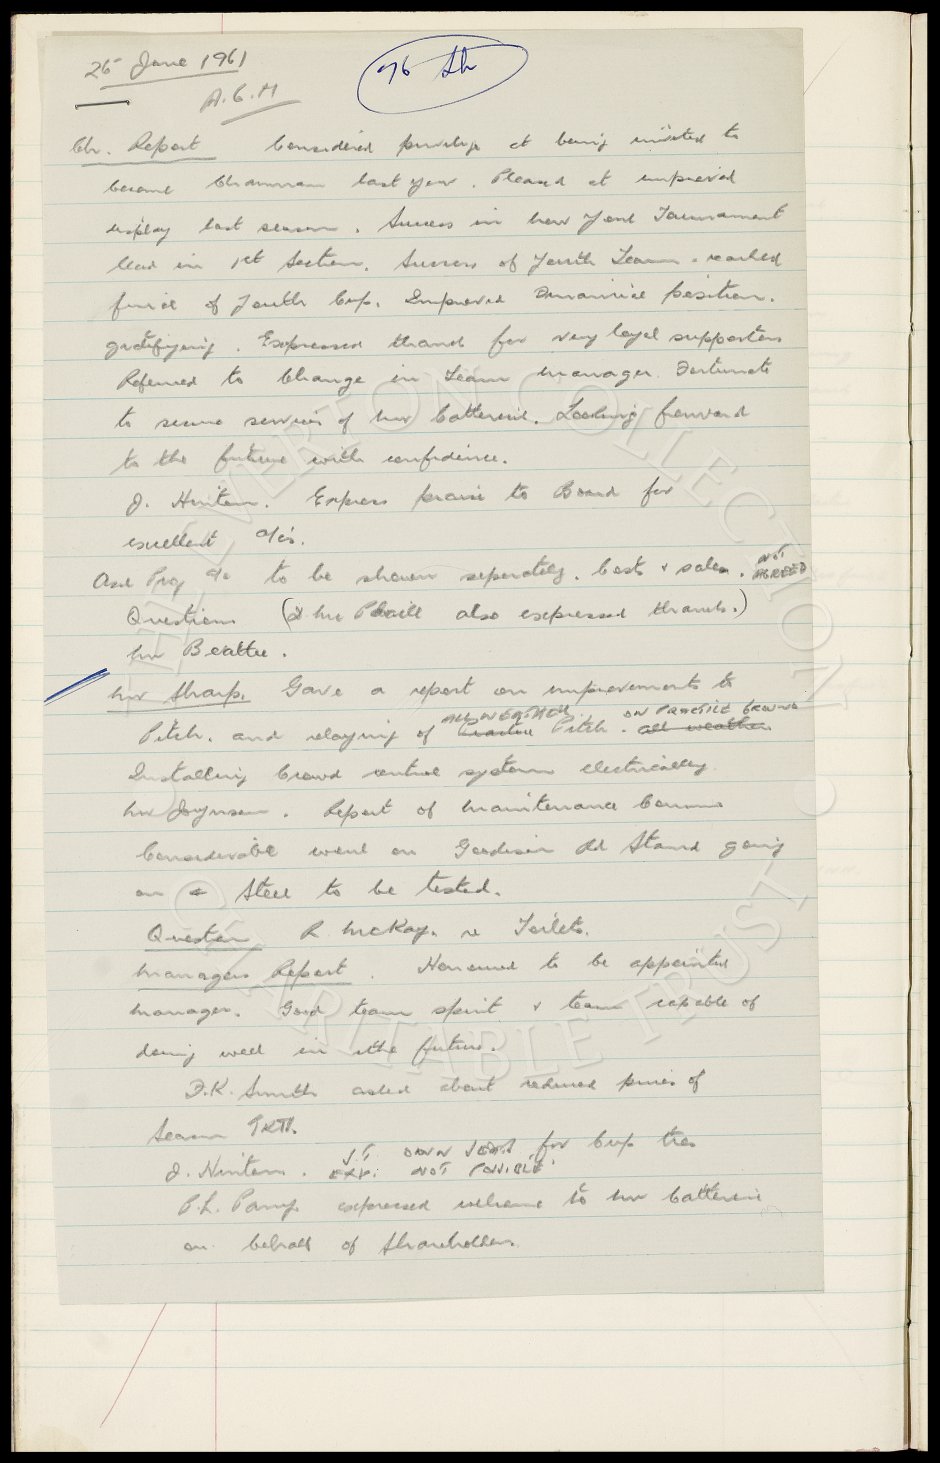 26 June 1961
76 Sh
A.G.M
Chr. Report Considered privilege at being invited to
become Chairman last year. Pleased at improved
display last season. Success in New York Tournament
lead in 1st Section. Success of Youth Team - reached
final of Youth Cup. Improved Financial position.
gratifying. Expressed thanks for very loyal supporters
Referred to Change in Team Manager. Fortunate
to secure services of Mr Catterick. Looking forward
to the future with confidence.
J. Hinton. Express praise to Board for
excellent a/cs.
Ask Prog a/c to be shown seperately. Costs & sales. NOT AGREED
Questions (& Mr also expressed thanks.)
Mr Beattie.
Mr Sharp. Gave a report on improvements to
Pitch. and relaying of Practice ALL WEATHER Pitch. all weather ON PRACTICE GROUND
Installing Crowd control system electrically
Mr Joynson. Report of Maintenance Comm
Considerable work on Goodison Rd Stand going
on & Steel to be tested.
Question R. McKay. re Toilets.
Managers Report. Honoured to be appointed
manager. Good team spirit & team capable of
doing well in the future.
D.K. Smith asked about reduced prices of
Season TKTS.
J. Hinton. for Cup ties
EXP. NOT POSSIBLE
P.L. Parry. expressed welcome to Mr Catterick
on behalf of Shareholders.
THE EVERTON COLLECTION
CHARITABLE TRUST